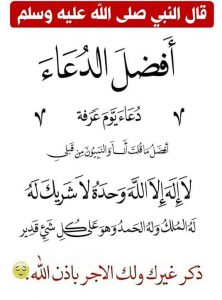 قال النبي صلى الله عليه وسلم
أفضل الدعاء
دعاء يوم عرفة
أفضل ما قلت أنا والنبيون من قبلي
لا إله إلا الله وحده لا شريك له
له الملك وله الحمد وهو على كل شيء قدير
ذكر غيرك ولك الاجر باذن الله.